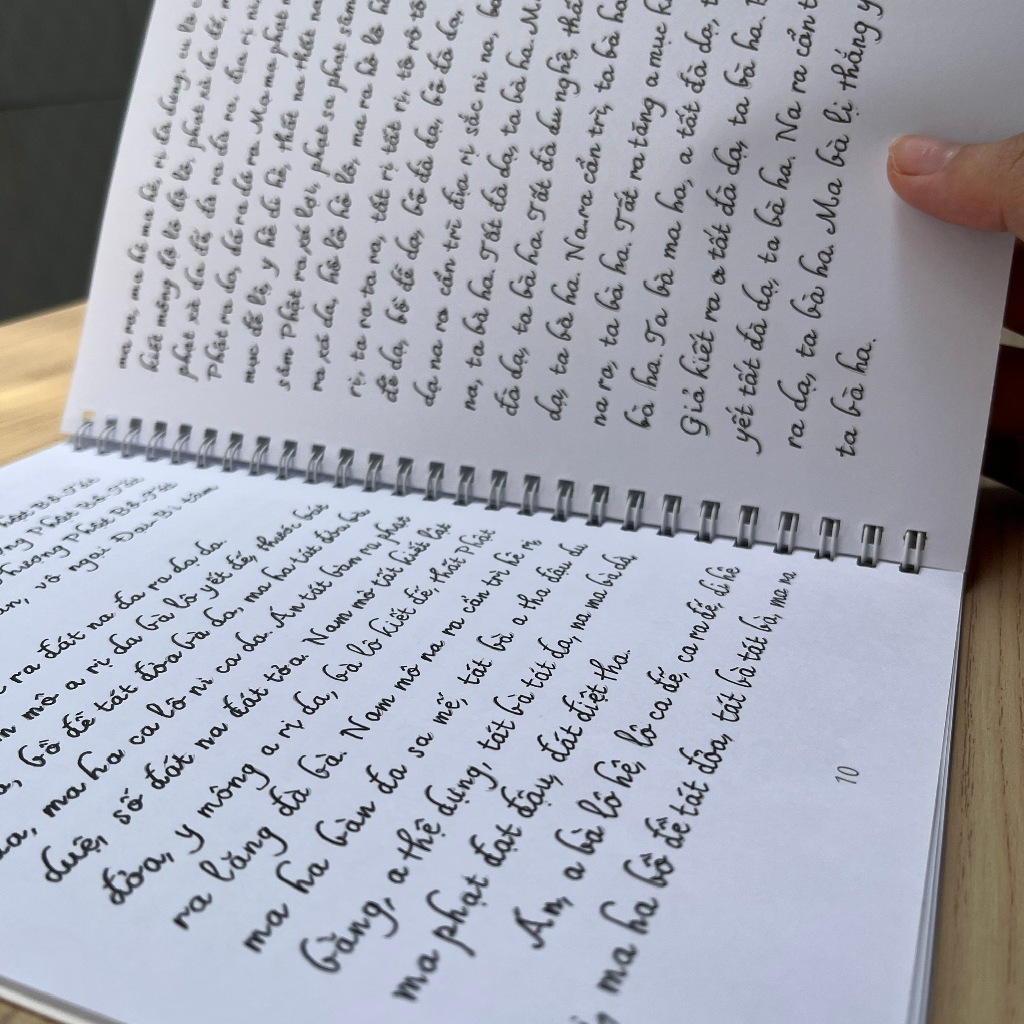 Bồ-Tát
Phật Bồ-Tát
Phật Bồ-Tát
vô ngại Đại-Bi tâm
ra đát na đa ra dạ da.
mô a rị da bà lô yết đế, thước bát
bồ đề tát đỏa bà da, ma ha tát đỏa bà
ma ha ca lô ni ca da. Án tát bàn ra phạt
duệ, số đát na đát tỏa. Nam mô tất kiết lật
đỏa, y mông a rị da, bà lô kiết đế, thất Phật
ra lăng đà bà. Nam mô na ra cẩn trì hê rị,
ma ha bàn đa sa mế, tát bà a tha đậu du
bằng, a thệ dựng, tát bà tát đa, na ma bà dà
ma phạt đạt đậu, đát điệt tha.
Án, a bà lô hê, lô ca đế, ca ra đế, di hê
ma ha bồ đề tát đỏa, tát bà tát bà, ma ra
10
ma ra, ma hê ma hê, rị đà dựng, cu lô
kiết mông độ lô độ lô, phạt xà da đế,
phạt xà da đế, đà ra đà ra, địa rị ni,
Phật ra da, dá ra dá ra. Mạ mạ phạt ma
mục đế lệ, y hê di hê, thất na thất na
sâm Phật ra xá lợi, phạt sa phạt sâm
ra xá da, hô lô hô lô, ma ra hô lô hô
rị, ta ra ta ra, tất rị tất rị, tô rô tô
đề dạ, bồ đề dạ, bồ đà dạ, bồ đà dạ,
dạ na ra cẩn trì địa rị sắc ni na, ba
na, ta bà ha. Tất đà dạ, ta bà ha. Ma
đà dạ, ta bà ha. Tất đà du nghệ, thất
dạ, ta bà ha. Na ra cẩn trì, ta bà ha
na ra, ta bà ha. Tất ra tăng a mục
bà ha. Ta bà ma ha, a tất đà dạ,
Giả kiết ra a tất đà dạ, ta bà ha.
yết tất đà dạ, ta bà ha. Na ra cẩn
ra dạ, ta bà ha. Ma bà lị thắng
ta bà ha.